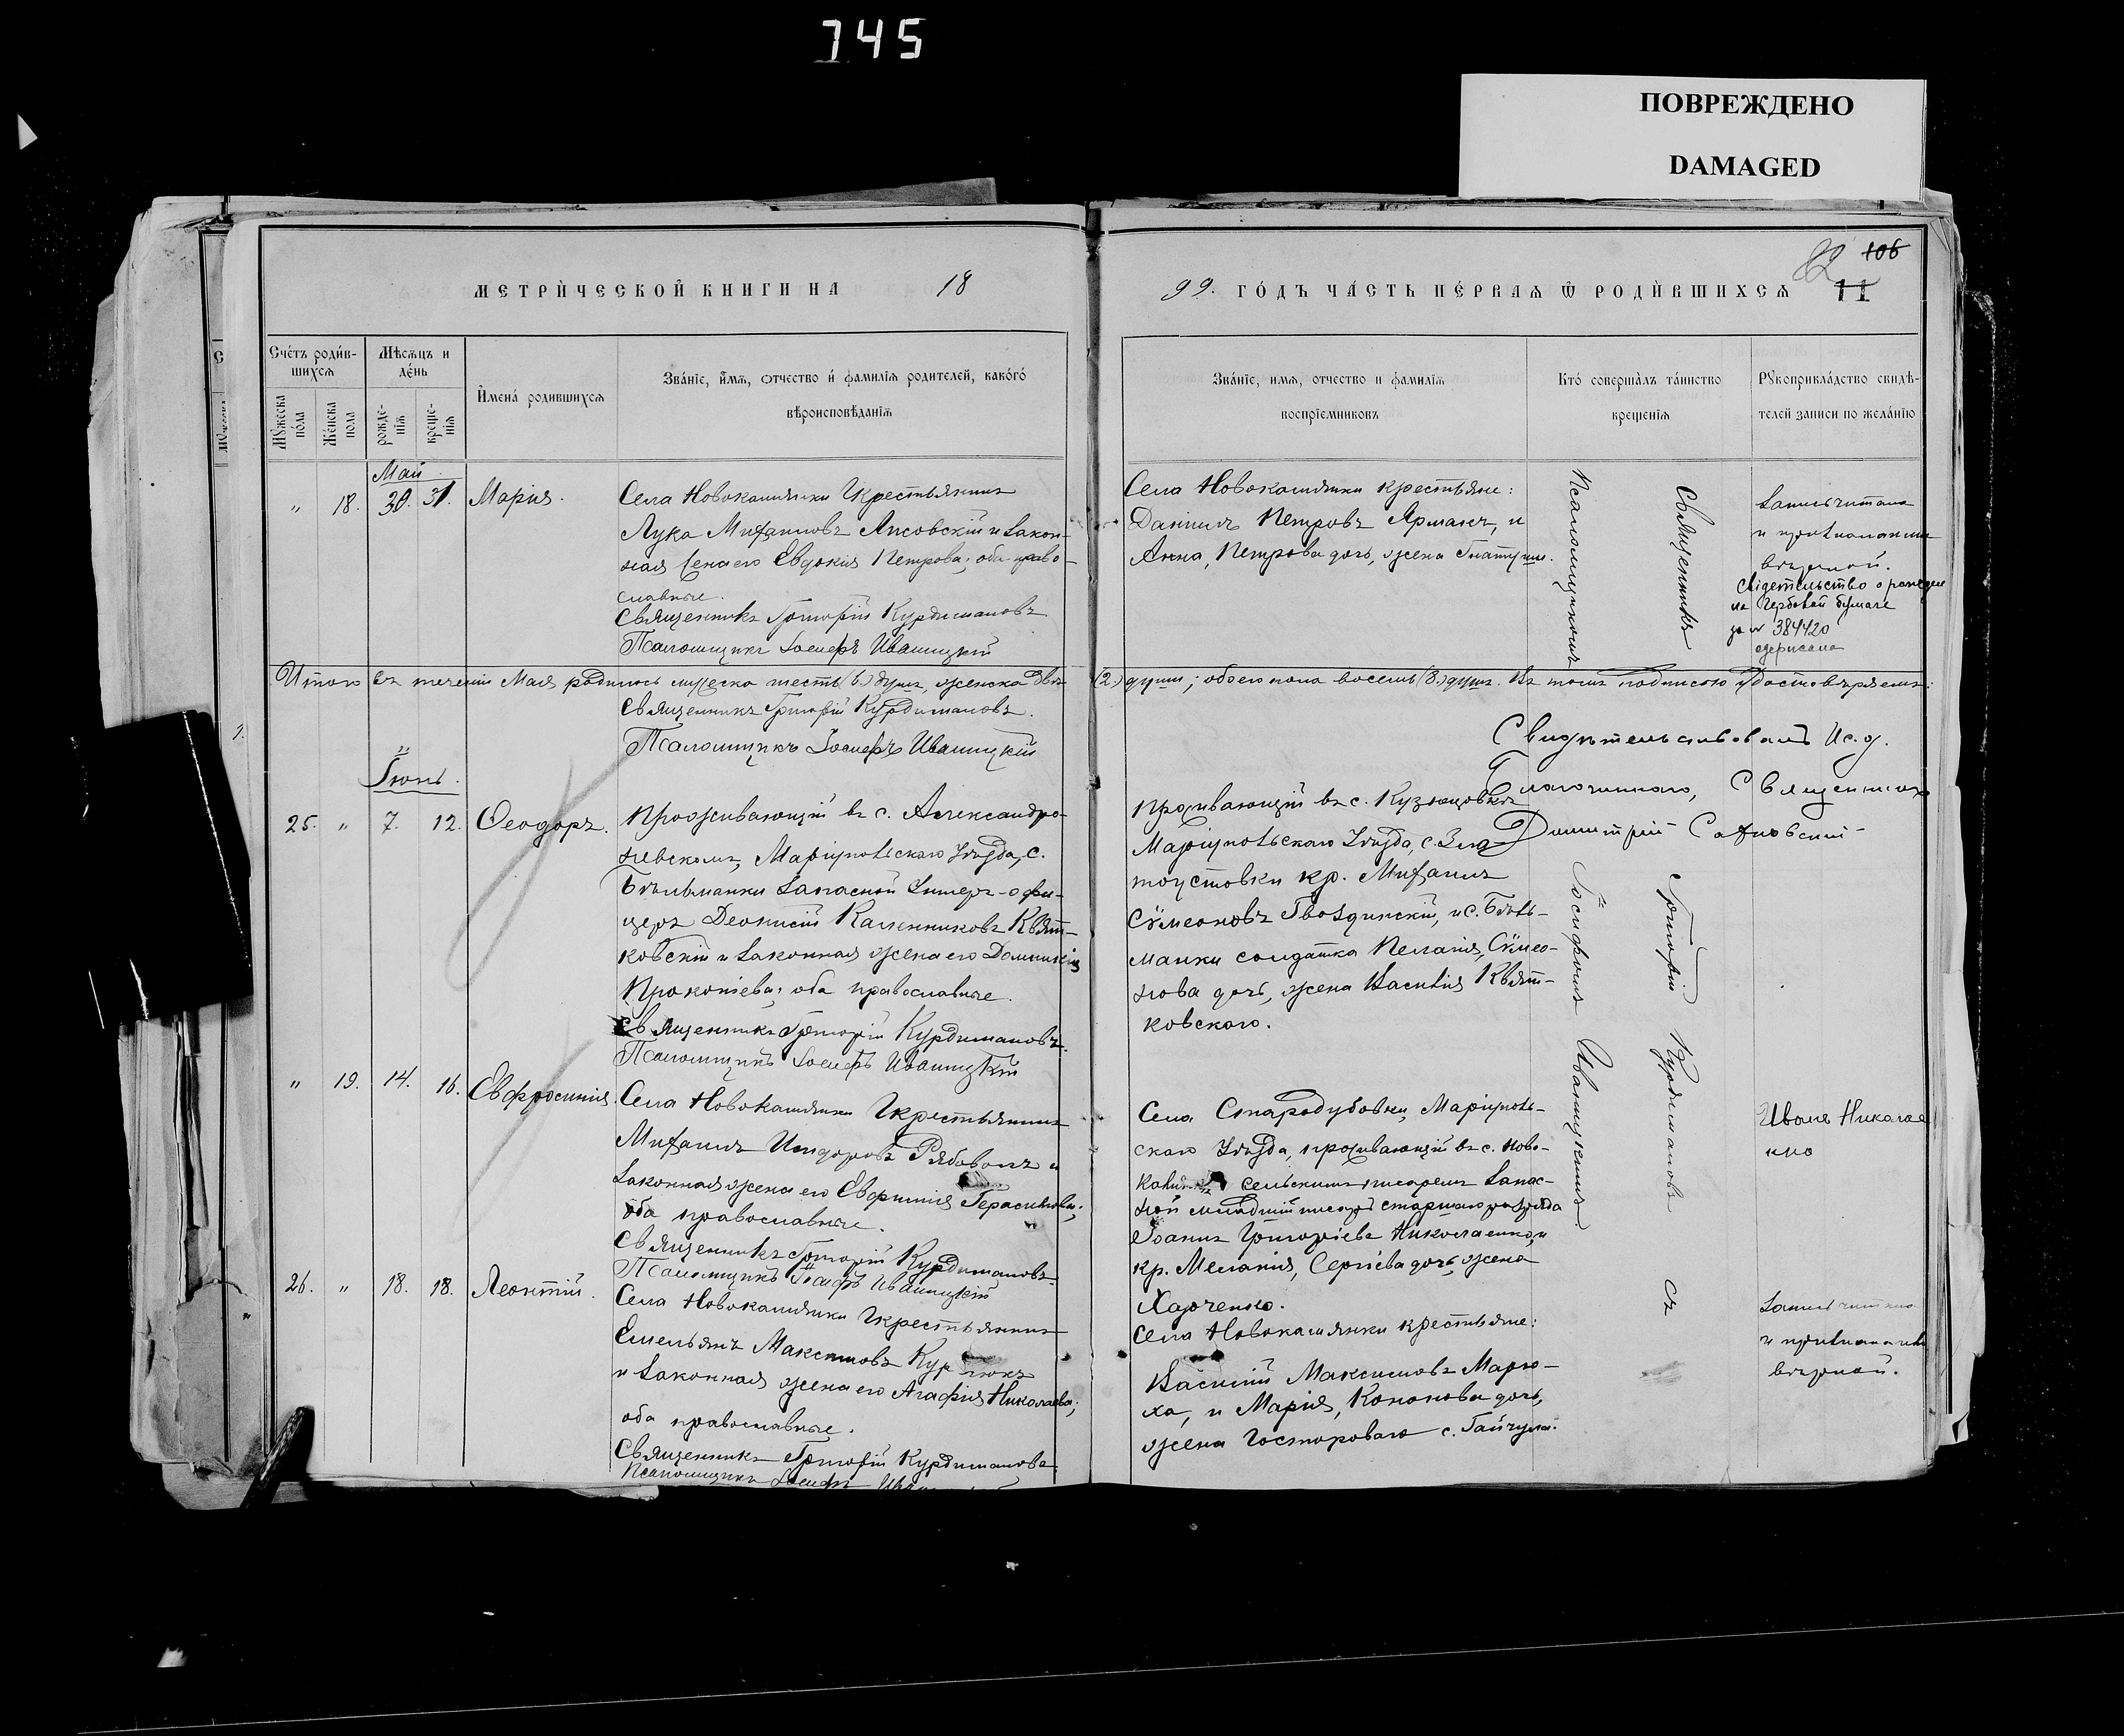 745
ПОВРЕЖДЕНО
DAMAGED
МЕТРИ́ЧЕСКОЙ КНИГИ НА 18
99. ГО́ДЪ ЧА́СТЬ ПЕ́РВАѦ Ѿ РОДИ́ВШИХСѦ
82 106
11
Сче́тъ роди́в-
шихсѧ
Мѣсѧцъ и
де́нь
Мꙋ́жеска
по́ла
Же́нска
пола
рожде-
нїѧ
креще-
нїѧ
И҆мена́ родившихсѧ
Зва́нїе, и҆́мѧ, ѻтчество и҆ фамилїѧ родителей, како́гѡ
вѣроисповѣ́данїѧ
Зва́нїе, имѧ, отчество и фамилїѧ
воспрїемниковъ
Кто́ соверша́лъ та́инство
крещенїѧ
Рꙋкоприкла́дство свидѣ-
телей записи по жела́нїю
Май
" 18. 30. 31. Марія.
Села Новокамянки Крестьянинъ
Лука Михаиловъ Лисовскій и закон-
ная жена его Евдокія Петрова; оба право-
славные.
Священникъ Григорій Курдимановъ
Псаломщикъ Іосифъ Иваницкій
Села Новокамянки крестьяне:
Даніилъ Петровъ Ярмакъ, и
Анна, Петрова дочь, жена
Запись читана
и признана
вѣрной.
Свидетельство о рожден
на Гербовой бумаге
за № 384420
Итого въ теченіи Мая родилось мужеска шесть (6.) душъ, женска двѣ
(2.) души; обоего пола восемь (8.) душъ. Въ томъ подписью удостовѣряемъ:
Священникъ Григорій Курдимановъ.
Псаломщикъ Іосифъ Иваницкій
Свидѣтельствовалъ Ис. д.
Благочиннаго, Священникъ
Димитрій
Іюнь.
25. " 7. 12. Ѳеодоръ.
Проживающій въ с. Александро-
невскомъ, Маріупольскаго Уѣзда, с.
Бѣльманки Запасной Унтеръ-офи-
церъ Діонисій Каллинниковъ Квят-
ковскій и законная жена его Домникія
Прокопіева; оба православные.
Священникъ Григорій Курдимановъ.
Псаломщикъ Іосифъ Иваницкій
Проживающій въ с. Кузнецовкѣ
Маріупольскаго Уѣзда, с. Зла-
тоустовки кр. Михаилъ
Сѵмеоновъ Гвоздинскій, и с. Бѣль-
манки солдатка Пелагія, Сѵмео-
нова дочь, жена Василія Квят-
ковскаго.
" 19. 14. 16. Евфросинія.
Села Новокамянки Крестьянинъ
Михаилъ Исидоровъ Рябоволъ и
законная жена его Евфимія Герасимова;
оба православные.
Священникъ Григорій Курдимановъ
Псаломщикъ Іосифъ Иваницкій
Села Стародубовки, Маріуполь-
скаго Уѣзда, проживающій въ с. Ново-
сельскимъ писаремъ Запас-
ной младшій писарь старшаго разряда
Іоаннъ Григоріевъ Николаенко, и
кр. Меланія, Сергіева дочь, жена
Харченко.
Иванъ Николае
нко
26. " 18. 18. Леонтій.
Села Новокамянки Крестьянинъ
Емельянъ Максимовъ
и законная жена его Агафія Николаева;
оба православные.
Священникъ Григорій Курдимановъ
Псаломщикъ Іосифъ
Села Новокамянки крестьяне:
Василій Максимовъ Марю-
ха, и Марія, Кононова дочь,
жена с. Гайчула.
Запись читана
и признана
вѣрной.
Священникъ
Григорій Курдимановъ съ
Псаломщикомъ
Іосифомъ Иваницкимъ